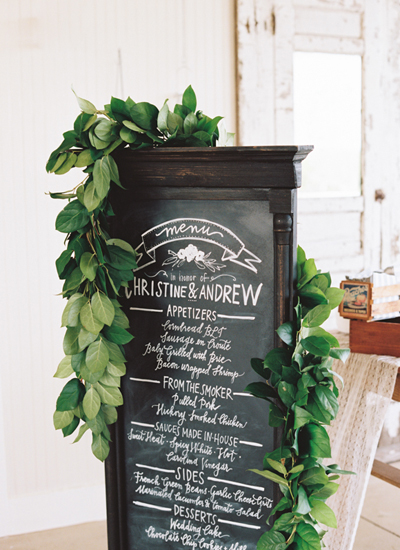 menu
in honor of
CHRISTINE & ANDREW
APPETIZERS
Cornbread BLT
Sausage en Croute
Baby Grilled with Brie
Bacon wrapped Shrimp
FROM THE SMOKER
Pulled Pork
Hickory Smoked Chicken
SAUCES MADE IN-HOUSE
Sweet Heat · Spicy White · Hot ·
Carolina Vinegar
SIDES
French Green Beans · Garlic Cheese Grits
Marinated Cucumber & tomato Salad
DESSERTS
Wedding Cake
Chocolate Chip Cookies